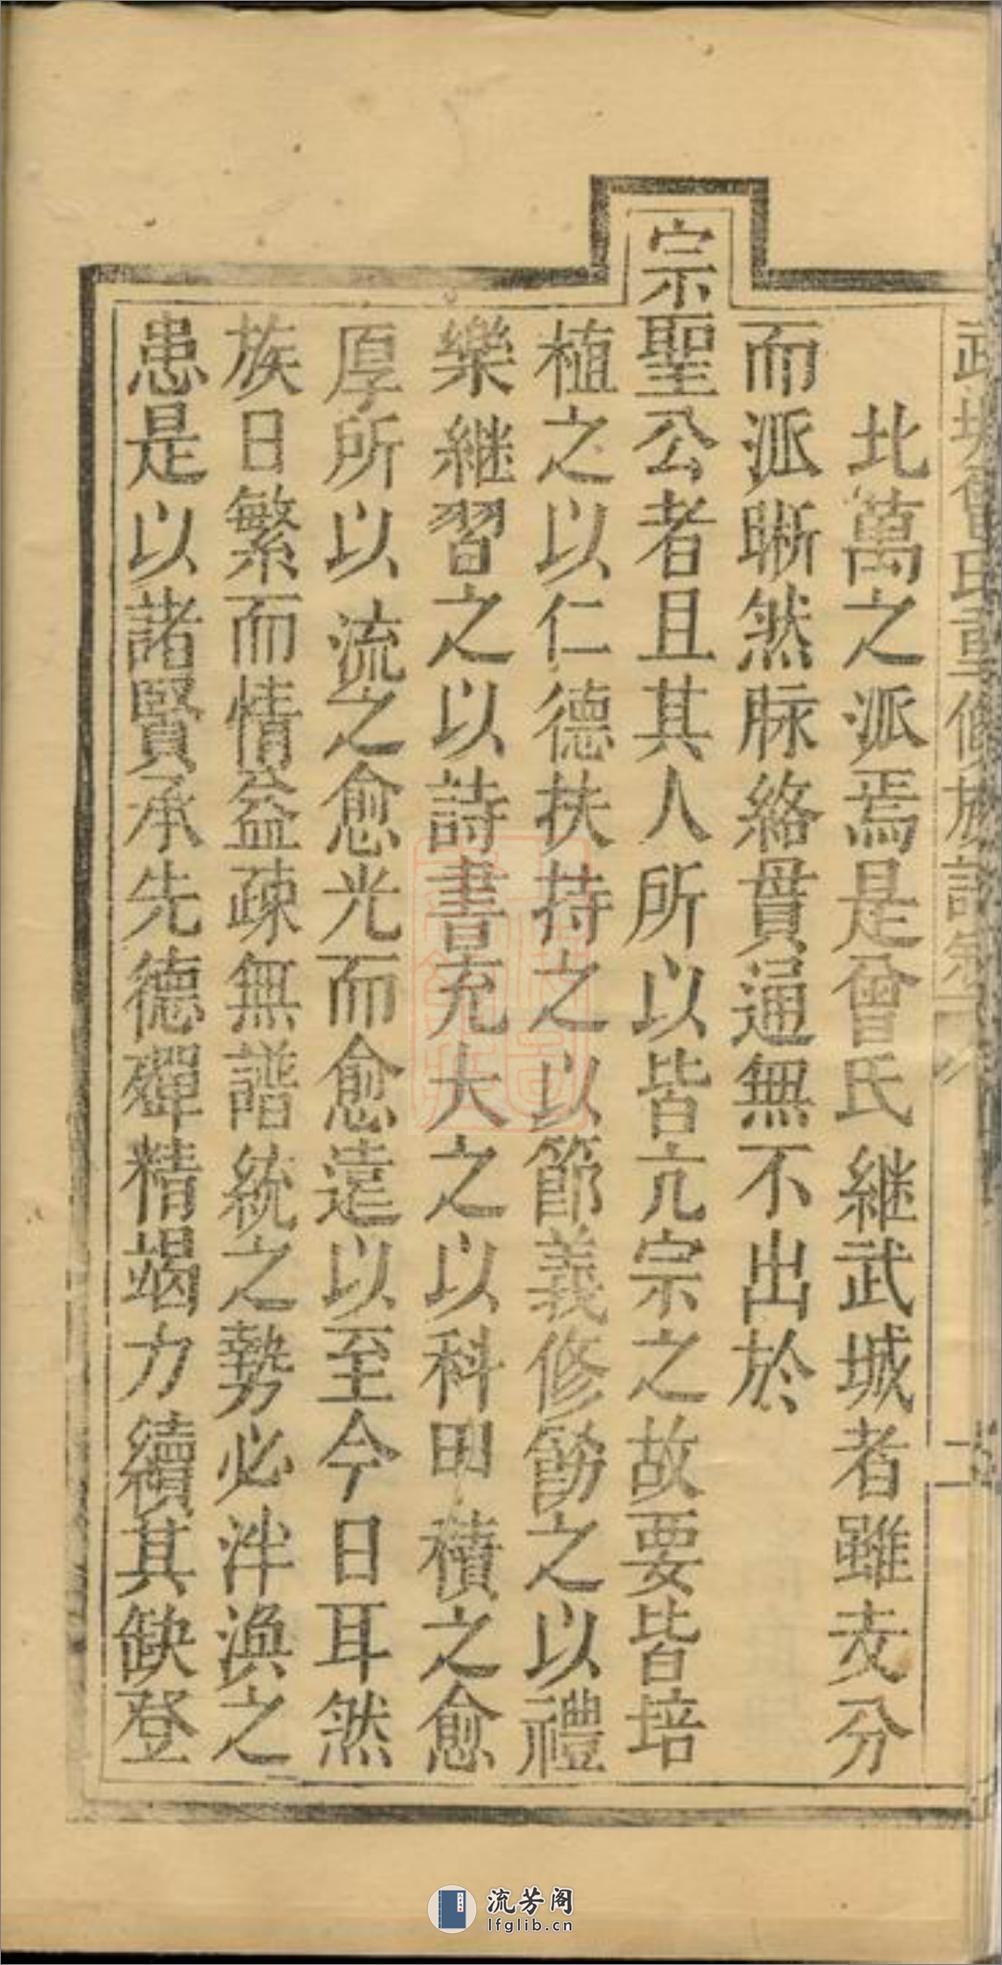 北萬之派焉是曾氏繼武城者雖支分
而派晰然脉絡貫通無不出於
宗聖公者且其人所以皆亢宗之故要皆培
植之以仁德扶持之以節義修飭之以禮
樂継習之以詩書充大之以科田積之愈
厚所以流之愈光而愈遠以至今日耳然
族日繁而情益疎無譜統之勢必泮渙之
患是以諸賢承先德殫精竭力續其缺登
流芳阁
lfglib.cn